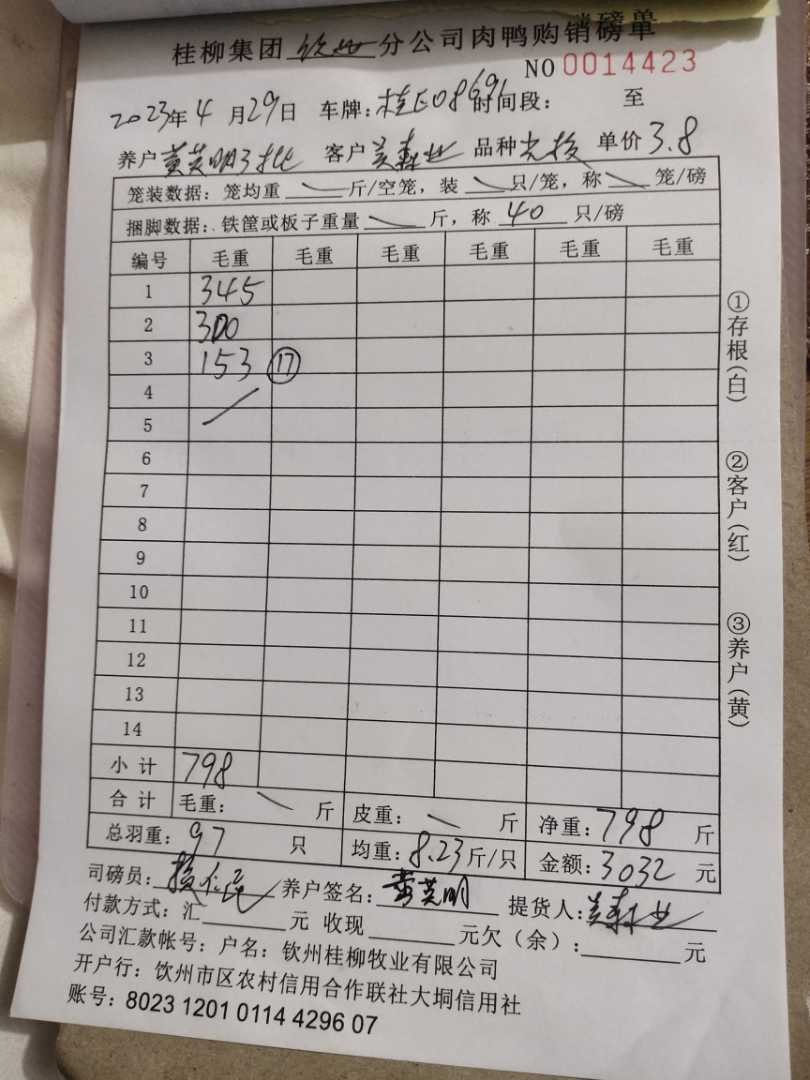 桂柳集团钦州分公司肉鸭购销磅单
NO 0014423
2023年4月29日 车牌:桂E08691 时间段: 至
养户黄芙明3批 客户 森业 品种 单价3.8
笼装数据:笼均重 斤/空笼,装 只/笼,称 笼/磅
捆脚数据:铁筐或板子重量 斤,称 40 只/磅
编号 毛重 毛重 毛重 毛重 毛重 毛重
1 345
2 300
3 153 ⑰
4
5
6
7
8
9
10
11
12
13
14
小计 798
合计 毛重: 斤 皮重: 斤 净重:798 斤
总羽重:97 只 均重:8.23斤/只 金额:3032 元
司磅员: 养户签名:黄芙明 提货人: 森业
付款方式:汇 元 收现 元欠(余): 元
公司汇款帐号:户名:钦州桂柳牧业有限公司
开户行:钦州市区农村信用合作联社大垌信用社
账号:8023 1201 0114 4296 07
①存根(白)
②客户(红)
③养户(黄)